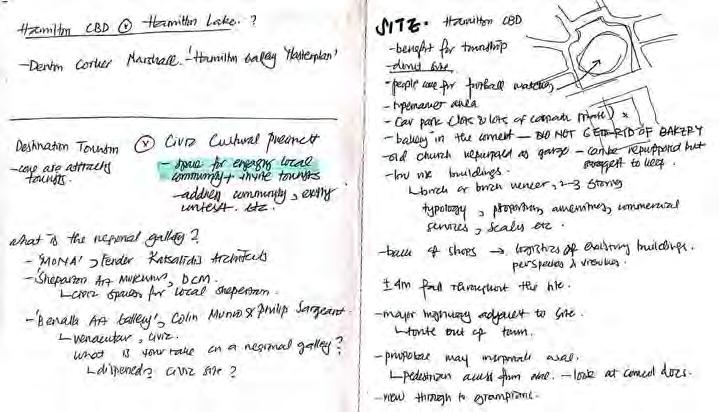 Hamilton CBD ⓥ Hamilton Lake. ?
- Denton Corker Marshall - 'Hamilton Gallery Masterplan'
Destination Tourism ⓥ Civic Cultural Precinct
- core are attracts tourists.
- space for engaging local community + invite tourists
- address community, existing context. etc.
what is the regional gallery?
- 'MONA', Fender Katsalidis Architects
- 'Shepparton Art Museum', DCM.
↳ civic spaces for local shepparton.
- 'Benalla Art Gallery', Colin Munro & Philip Sargeant.
↳ vernacular, civic.
what is your take on a regional gallery?
↳ dispersed? civic site?
SITE. Hamilton CBD
- benefit for township
- donut site
- people come for football matches
- permanent area
- car park (lots & lots of carpark there)
- bakery in the corner — DO NOT GET RID OF BAKERY
- old church repurposed as garage — can be repurposed but suggest to keep.
- low rise buildings.
↳ brick or brick veneer, 2-3 storeys
typology, proportion, amenities, commercial
services, scales etc.
- back of shops → logistics of existing buildings.
perspectives & views.
± 4m fall throughout the site.
- major highway adjacent to site.
↳ route out of town.
- proposal may incorporate
↳ pedestrian access from - look at council docs.
- view through to grampians.